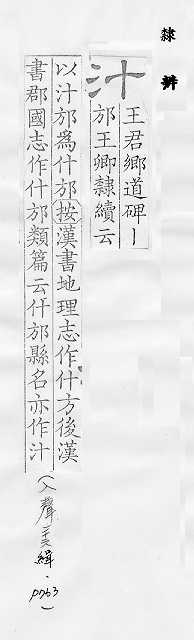 隸辨
汁 王君鄉道碑丨
邡王卿隸續云
以汁邡爲什邡按漢書地理志作什方後漢
書郡國志作什邡類篇云什邡縣名亦作汁
(入聲 緝.